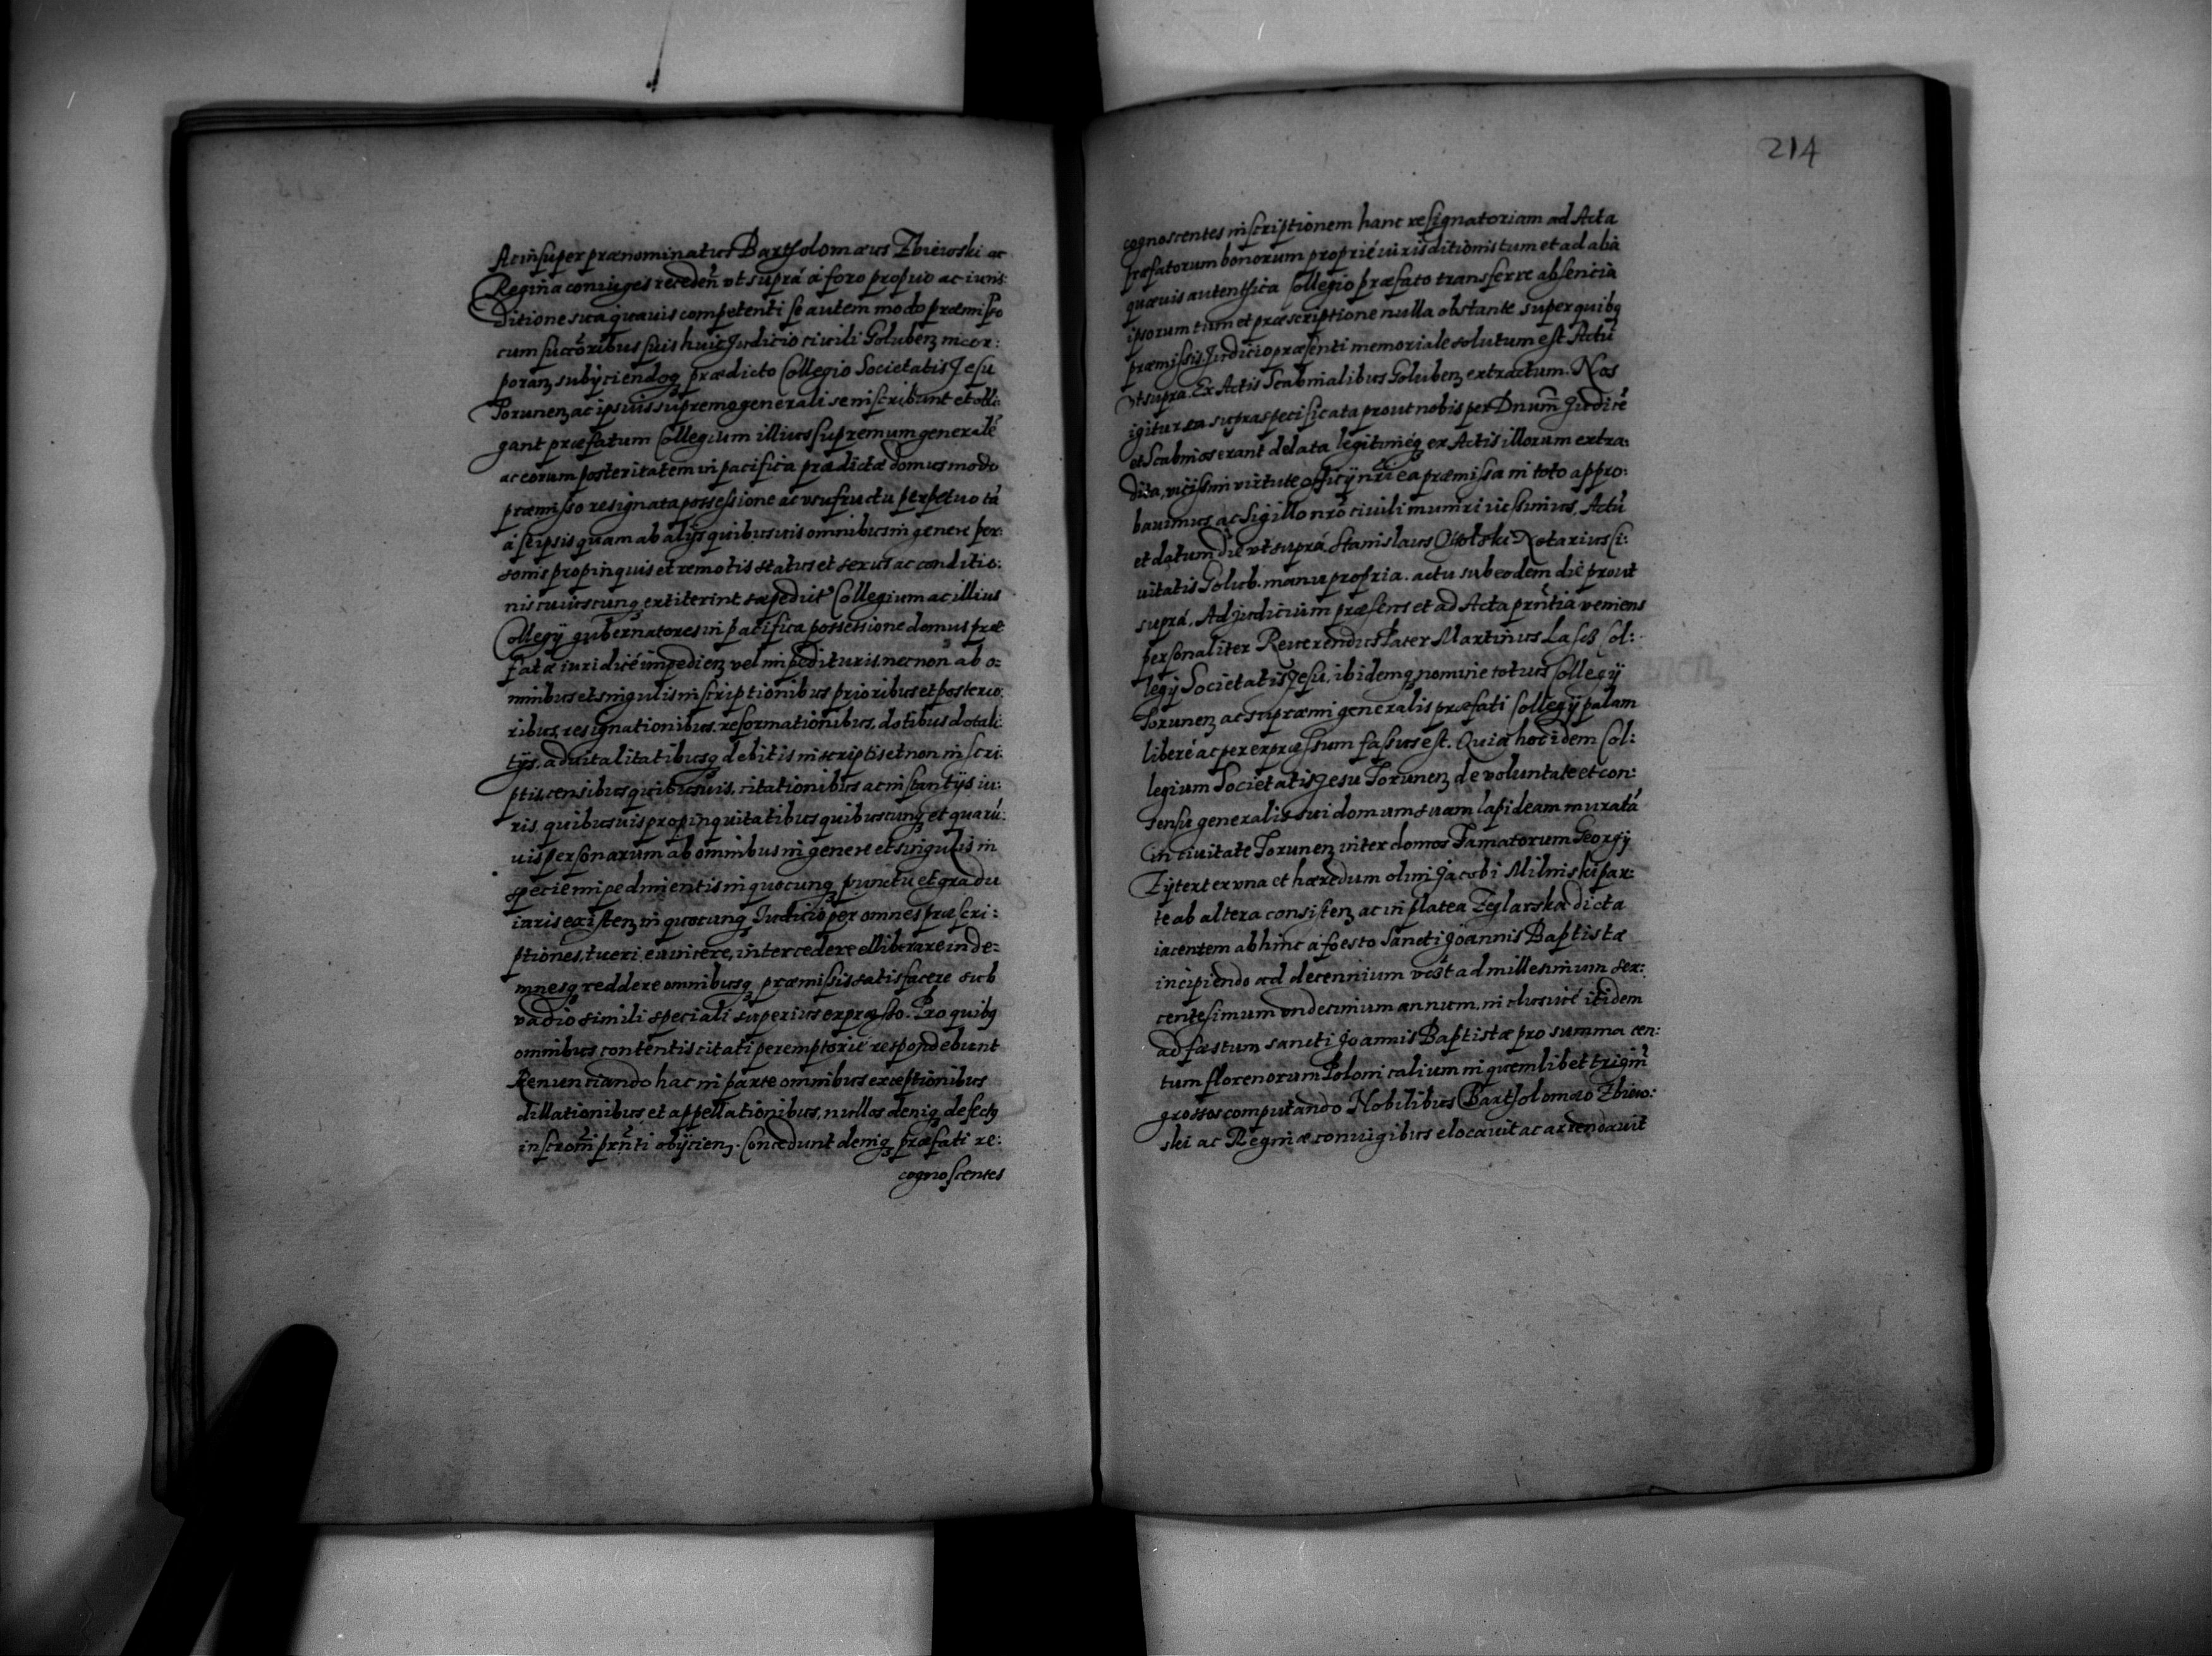 Ac insuper prænominatus Bartholomæus Zbiewski ac
Regina coniuges receden̄ vt suprá á foro proprio ac iuris:
ditione sua quauis competenti se autem modo præmisso
cum succōribus suis huic Judicio ciuili Golubenȝ incor:
poranȝ subijciendoqȝ prædicto Collegio Societatis Jesu
Torunenȝ ac ipsius supremo generali se inscribunt et obli
gant præfatum Collegium illius supremum generalé
ac eorum posteritatem in pacifica prædictæ domus modo
præmisso resignata possessione ac vsufructu perpetuo tá
á se ipsis quam ab alijs quibusuis omnibus in genere per:
sonis propinquis et remotis status et sexus ac conditio:
nis cuiuscunqȝ extiterint sæpedict Collegium ac illius
Collegij gubernatores in pacifica possessione domus præ
fatæ iuridicé impedienȝ vel impedituris, necnon ab o:
mnibus et singulis inscriptionibus prioribus et posterio:
ribus, resignationibus, reformationibus, dotibus dotali:
tijs, aduitalitatibusqȝ debitis inscriptis et non inscri:
ptis, censibus quibusuis, citationibus ac instantijs iu:
ris, quibusuis propinquitatibus quibuscunqȝ et quarú:
uis personarum ab omnibus in genere et singulis in
specie impedimentis in quocunqȝ punctu et gradu
iuris existenȝ in quocunqȝ Judicio per omnes præscri:
ptiones, tueri, euincere, intercedere et liberare inde:
mnesqȝ reddere omnibusqȝ præmissis satisfacere sub
vadio simili speciali superius expræsso. Pro quibqȝ
omnibus contentis citati peremptorié respondebunt
Renunciando hac in parte omnibus exceptionibus
dillationibus et appellationibus, nullos deniqȝ defectqȝ
inscrom̄ prn̄ti obijcienȝ. Concedunt deniqȝ præfati re:
cognoscentes
214
cognoscentes inscriptionem hanc resignatoriam ad Acta
præfatorum bonorum proprié iurisditionis tum et ad alia
quæuis autenthica Collegio præfato transferre absentia
ipsorum tum et præscriptione nulla obstante super quibqȝ
præmissis, Judicio præsenti memoriale solutum est. Actú
vt supra. Ex Actis Scabinalibus Golubenȝ extractum. Nos
igitur ea supra specificata prout nobis per Dnum̄ Judicé
et Scabinos erant delata legitiméqȝ ex Actis illorum extra:
dita, vicissim virtute officij nr̄i ea præmissa in toto appro:
bauimus, ac Sigillo nr̄o ciuili muniri iussimus, Actú
et datum die vt suprá. Stanislaus Notarius Ci:
uitatis Golub. manu propria. actu sub eodem dié prout
suprá. Ad Judicium præsens et ad Acta prn̄tia veniens
personaliter Reuerendus Pater Martinus Col:
legij Societatis Jesu, ibidemqȝ nomine totius Collegij
Torunenȝ ac supræmi generalis præfati Collegij palam
liberé ac per expræssum fassus est. Quia hoc idem Col:
legium Societatis Jesu Torunenȝ de voluntate et con:
sensu generalis sui domum suam lapideam muratá
in ciuitate Torunenȝ inter domos Famatorum Georgij
Zijtext ex vna et hæredum olim Jacobi Milniski par:
te ab altera consistenȝ ac in platea Zeglarska dicta
iacentem abhinc á foesto Sancti Joannis Baptistæ
incipiendo ad decennium vost ad millesimum sex:
centesimum vndecimium annum, inclusiué itidem
ad fæstum sancti Joannis Baptistæ pro summa cen:
tum florenorum Polonicalium in quemlibet triginͭ
grossos computando Nobilibus Bartholomæo Zbiew:
ski ac Reginæ coniugibus elocauit ac arrendauit